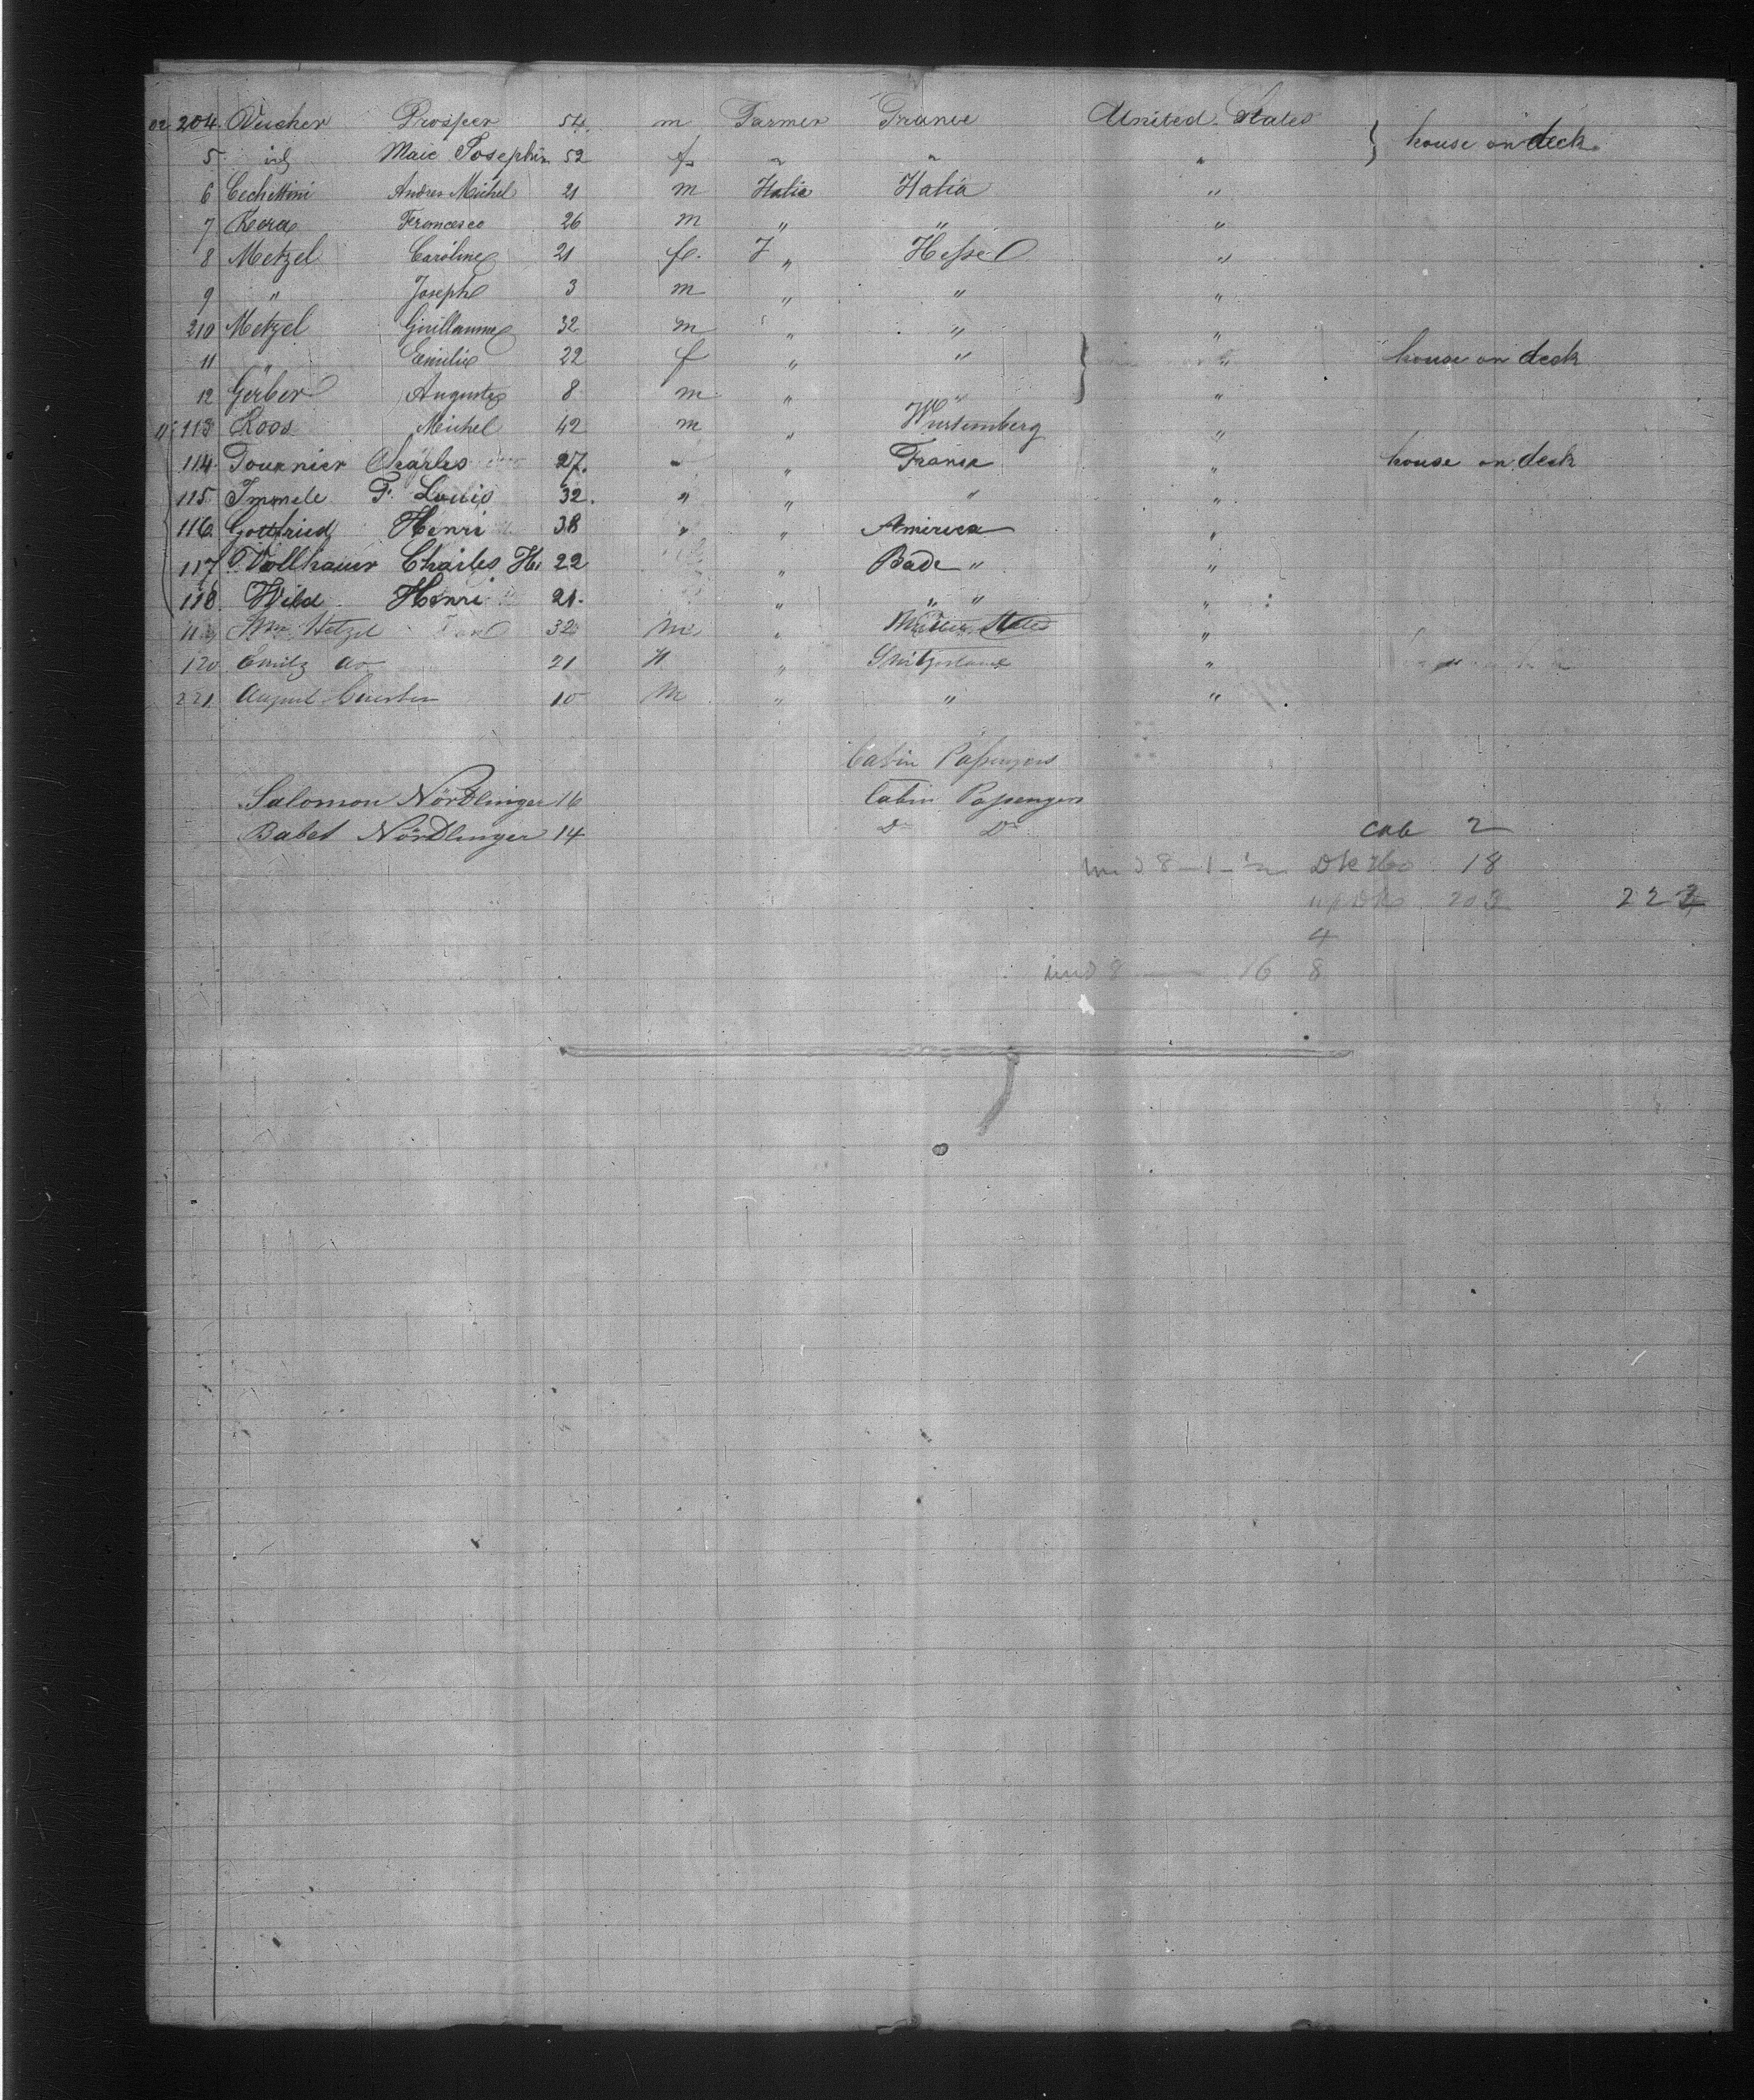 02 204. Vischer Prosper 54. m Farmer France United States } house on deck.
5 id Maie Josephin 52 f. " " "
6 Cechettini Andrea Michel 21 m Italie Italia "
7 Kora Francesco 26 m " " "
8 Metzel Caroline 21 fe. F " Hesse "
9 " Joseph 3 m " " "
210 Metzel Guillaume 32 m " " "
11 " Emilie 22 f " " } " house on deck
12 Gerber Auguste 8 m " " "
113 Roos Michel 42 m " Wurtemberg "
114. Fournier Charles 27. " " France " house on deck
115 Immele F. Louis 32. " " " "
116. Gottfried Henri 38 " " America "
117 Vollhauer Charles H. 22 " Bade " "
118. Wild Henri 21. " " " "
119 Wm. Hetzel 32 m " States "
120 Emily do 21 " Switzerland "
221 August 10 m " " "
Cabin Passengers
Salomon Nördlinger 16 Cabin Passengers
Babet Nördlinger 14 Do Do cab 2
18
203 222
4
16 8